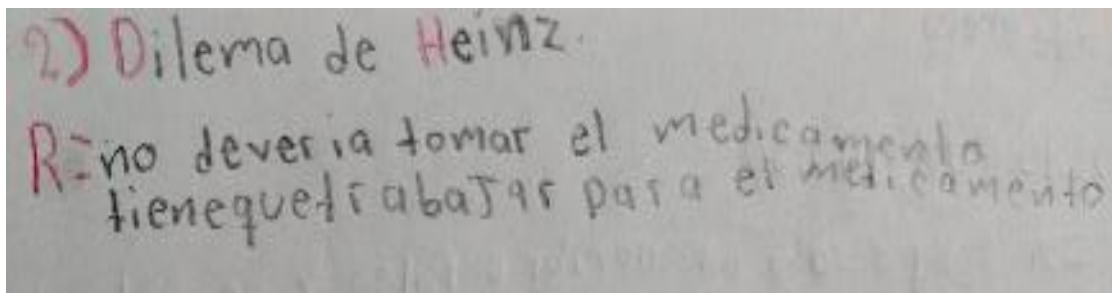 2) Dilema de Heinz.
R= no deveria tomar el medicamento
tienequetrabajar para el medicamento